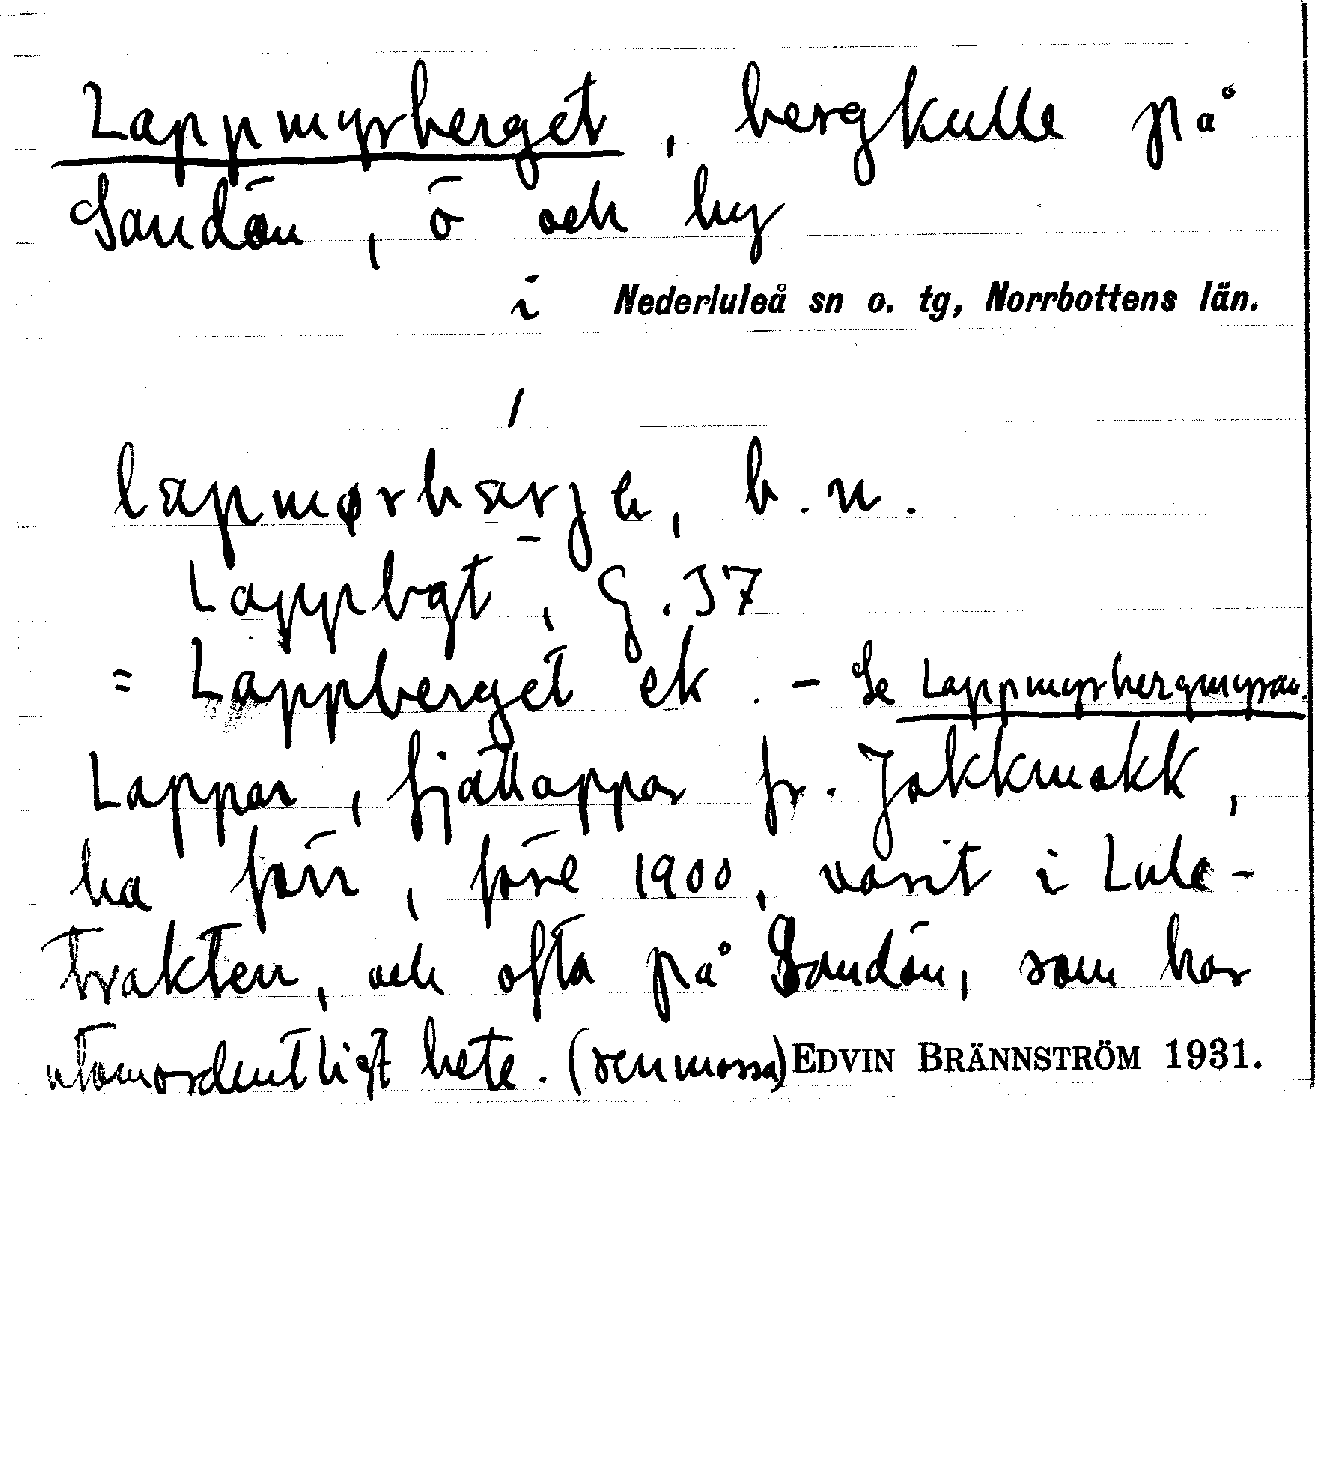 Lappmyrberget, bergkulle på
Sandön, ö och by
i Nederluleå sn o. tg, Norrbottens län.
lapmørbärje, b.n.
Lappbgt, G.37
= Lappberget ek. - Se Lappmyrbergmyran.
Lappar, fjällappar fr. Jokkmokk,
ha förr, före 1900, varit i Lule-
trakten, och ofta på Sandön, som har
utomordentligt bete. (renmossa) EDVIN BRÄNNSTRÖM 1931.